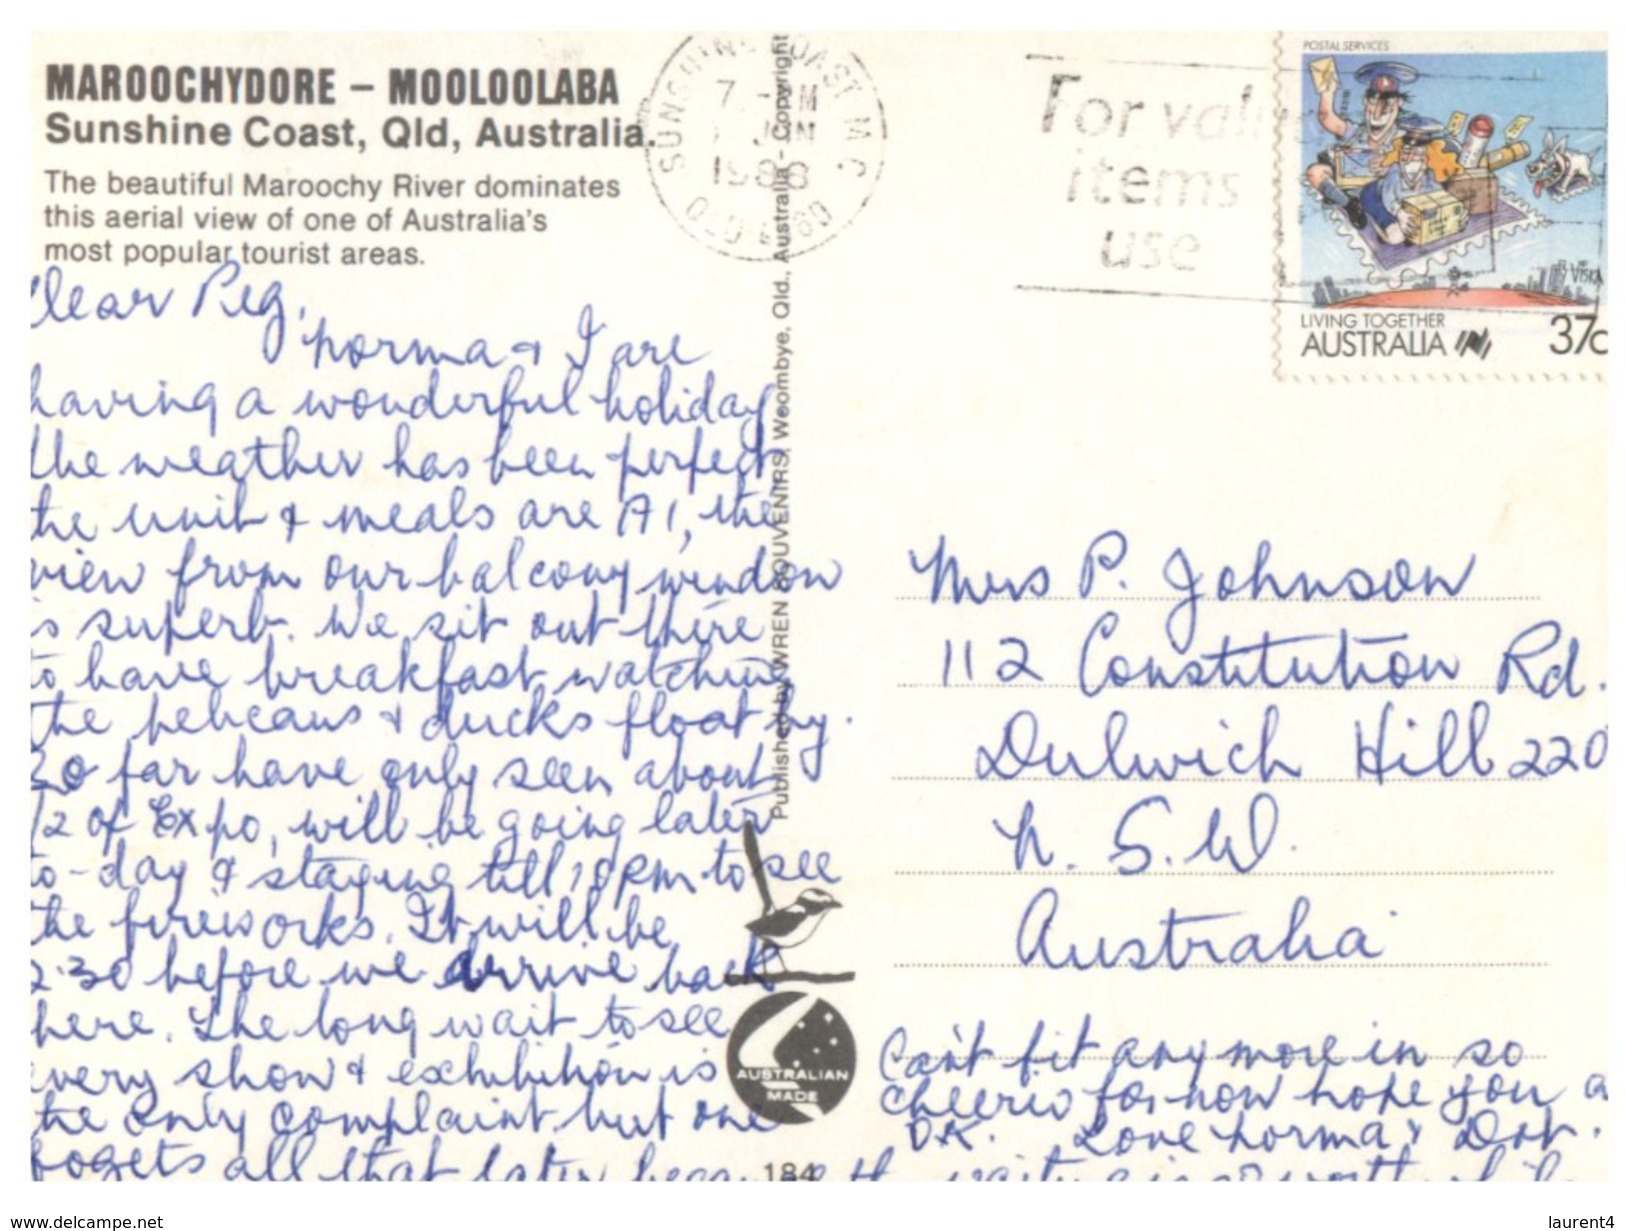 MAROOCHYDORE – MOOLOOLABA
Sunshine Coast, Qld, Australia.
The beautiful Maroochy River dominates
this aerial view of one of Australia's
most popular tourist areas.
Dear Peg,
Norma & I are
having a wonderful holiday
the weather has been perfect
the unit & meals are A1, the
view from our balcony window
is superb. We sit out there
to have breakfast watching
the pelicans & ducks float by.
So far have only seen about
1/2 of Expo, will be going later
to-day & staying till 10 pm to see
the fireworks. It will be
2.30 before we arrive back
here. The long wait to see
every show & exhibition is
the only complaint but one
forgets all that later because the waiting is so worth while
SUNSHINE COAST M.C
7 - PM
JUN
1988
QLD 4560
For valu
items
use
POSTAL SERVICES
VISKA
LIVING TOGETHER
AUSTRALIA
37c
Published by WREN SOUVENIRS, Woombye, Qld., Australia - Copyright
AUSTRALIAN
MADE
184
Mrs P. Johnson
112 Constitution Rd.
Dulwich Hill 220
N.S.W.
Australia
Can't fit any more in so
cheerio for now hope you a
O.K. Love Norma & Dot.
www.delcampe.net
laurent4